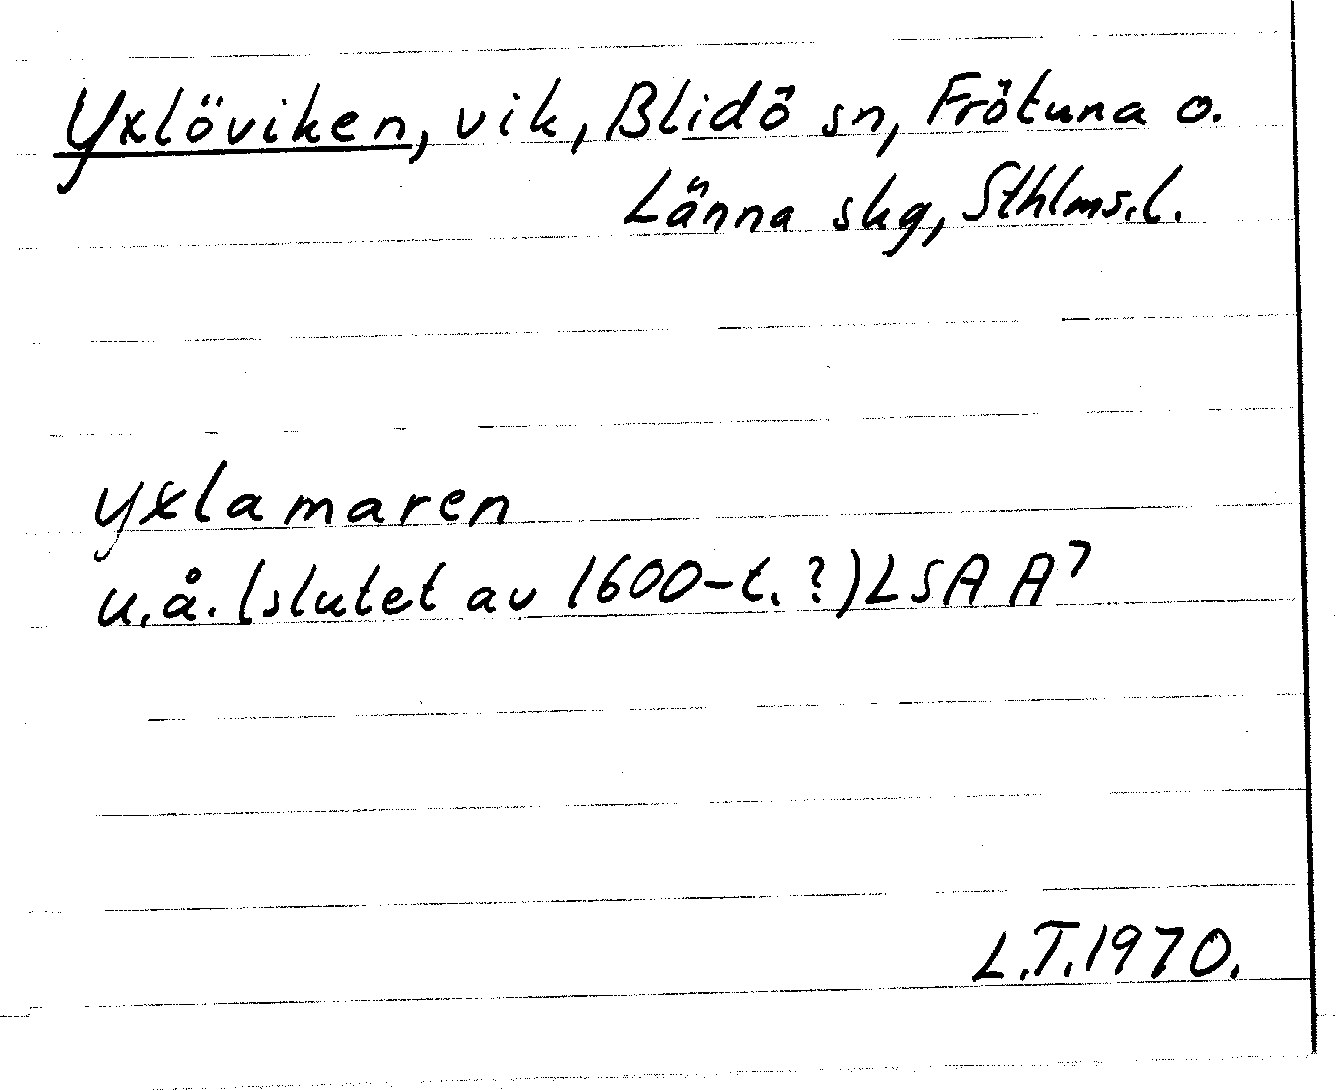 Yxlöviken, vik, Blidö sn, Frötuna o.
Länna skg, Sthlms.l.
yxlamaren
u.å. (slutet av 1600-t.?) LSA A⁷
L.T.1970.